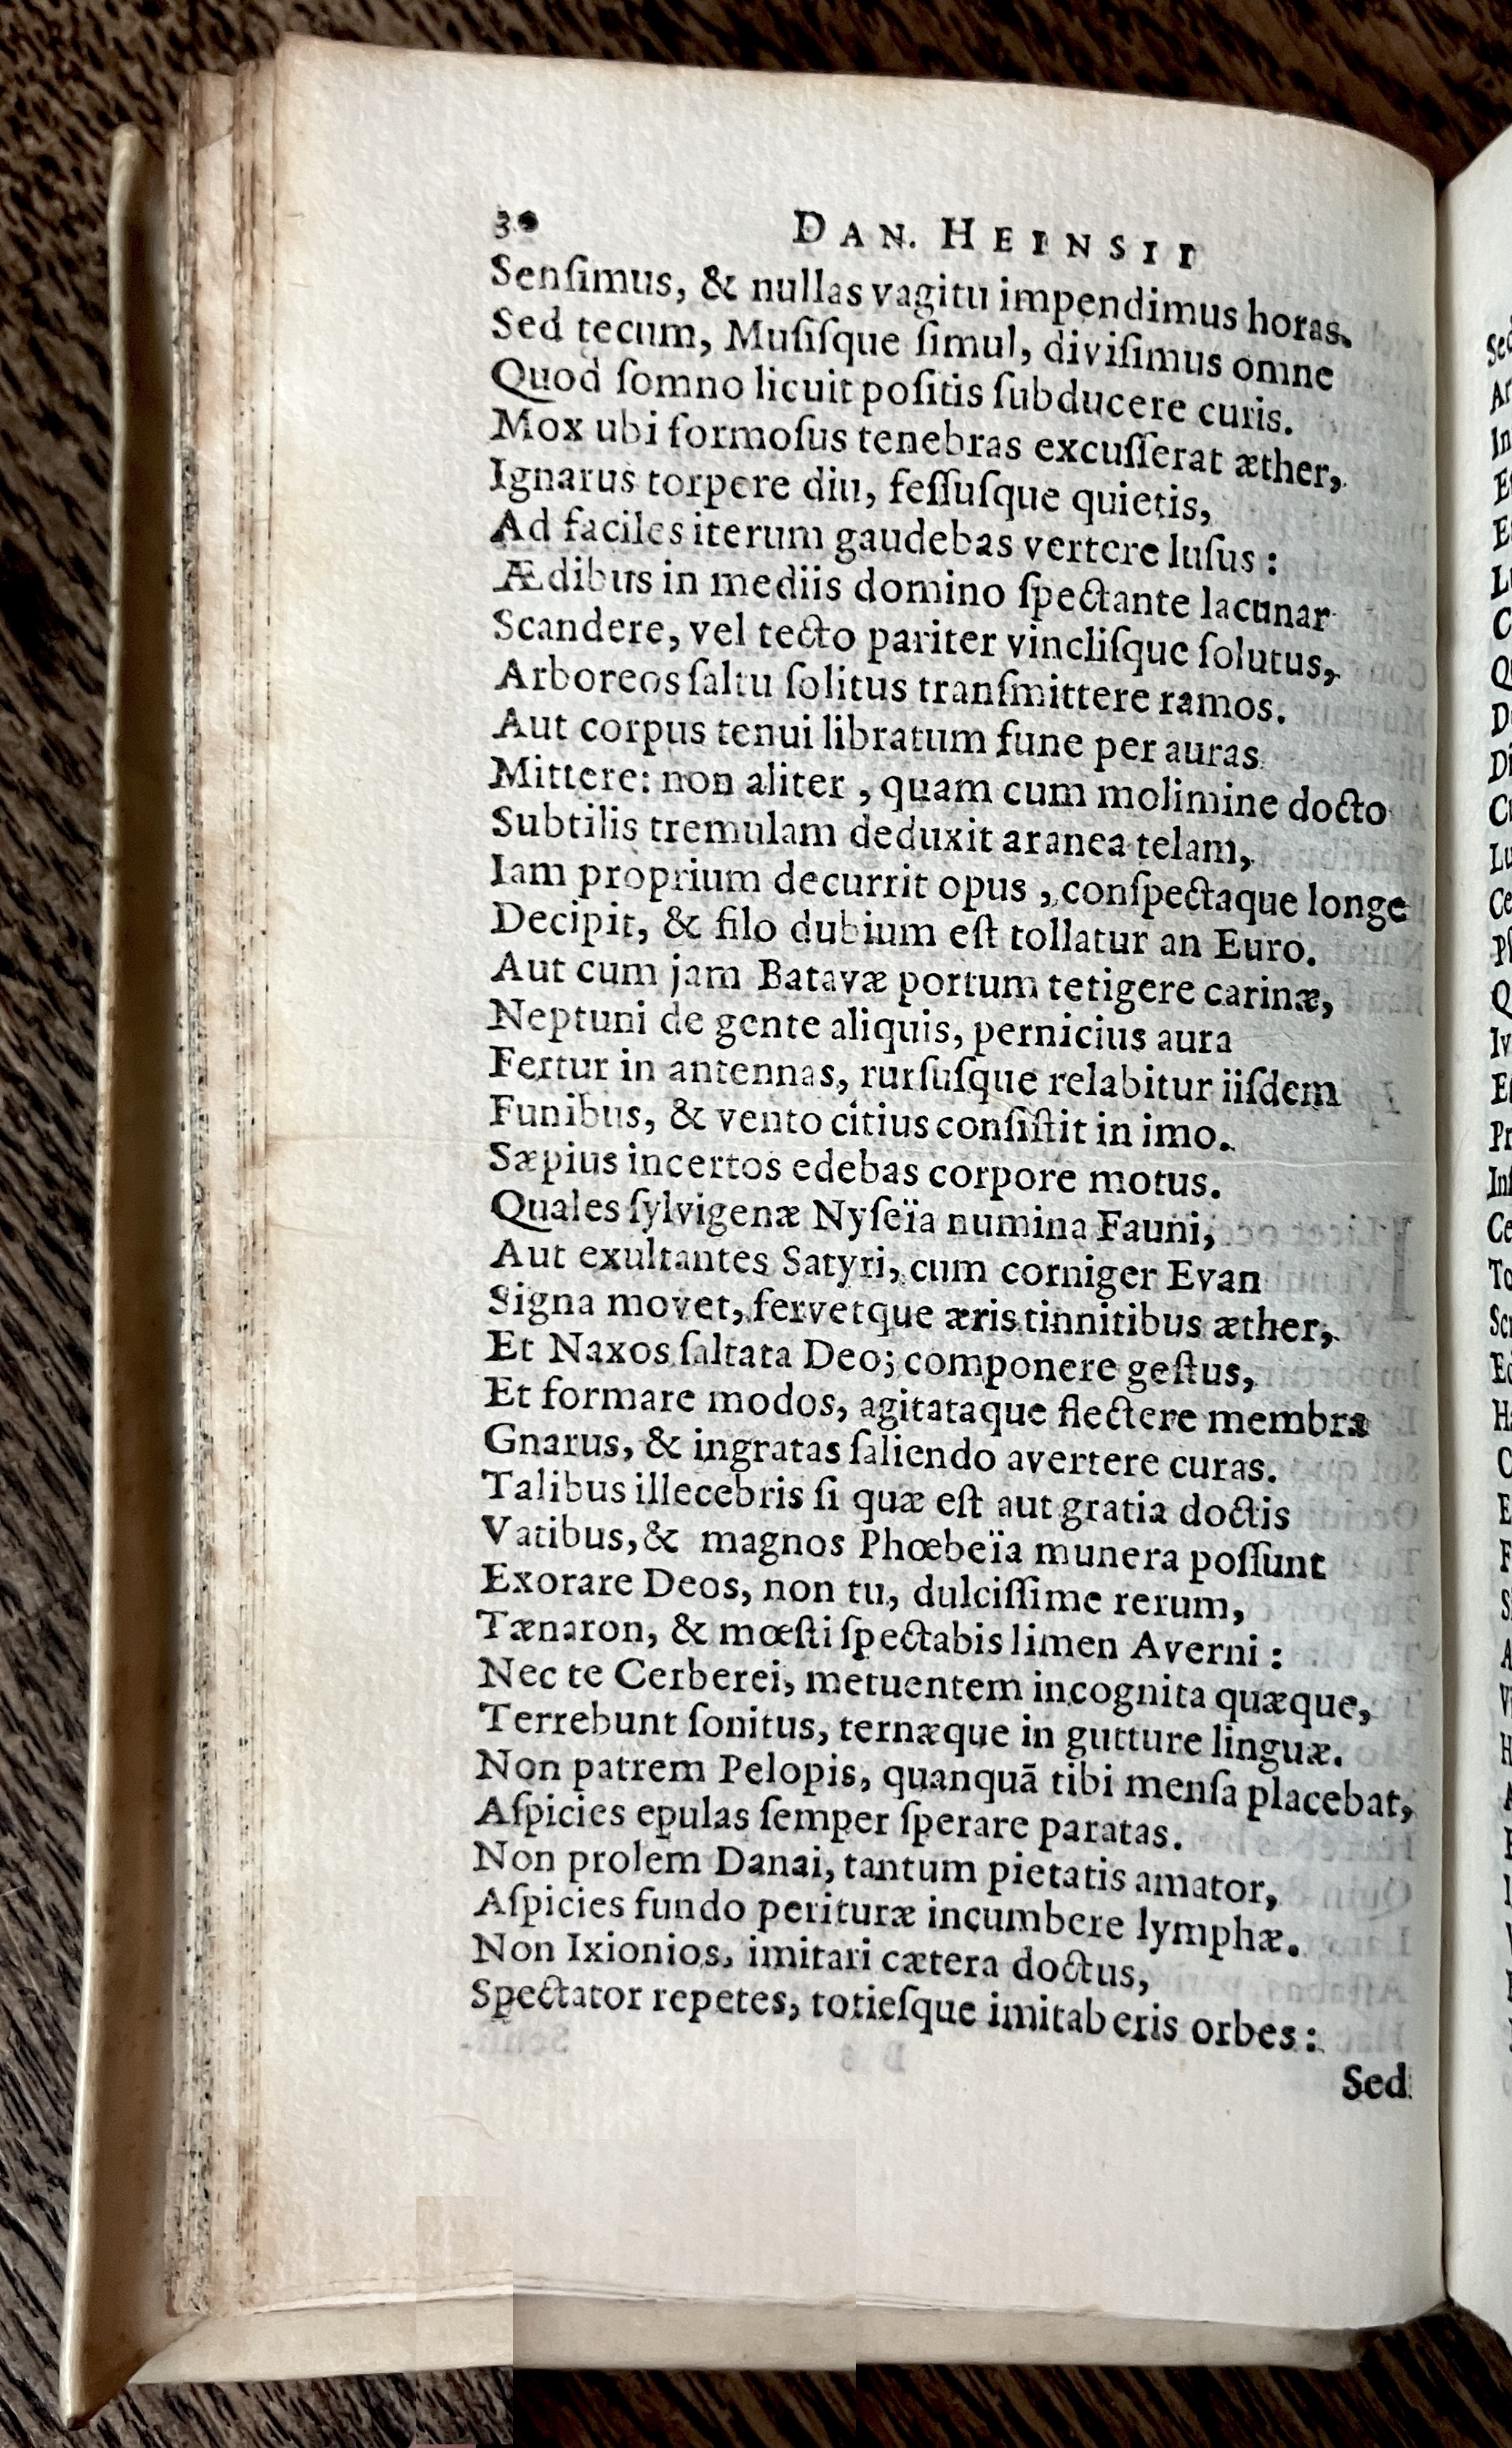 30 DAN. HEINSII
Senſimus, & nullas vagitu impendimus horas.
Sed tecum, Muſiſque ſimul, diviſimus omne
Quod ſomno licuit poſitis ſubducere curis.
Mox ubi formoſus tenebras excuſſerat æther,
Ignarus torpere diu, feſſuſque quietis,
Ad faciles iterum gaudebas vertere luſus:
Ædibus in mediis domino ſpectante lacunar
Scandere, vel tecto pariter vincliſque ſolutus,
Arboreos ſaltu ſolitus tranſmittere ramos.
Aut corpus tenui libratum fune per auras
Mittere: non aliter, quam cum molimine docto
Subtilis tremulam deduxit aranea telam,
Iam proprium decurrit opus, conſpectaque longe
Decipit, & filo dubium eſt tollatur an Euro.
Aut cum jam Batavæ portum tetigere carinæ,
Neptuni de gente aliquis, pernicius aura
Fertur in antennas, rurſuſque relabitur iiſdem
Funibus, & vento citius conſiſtit in imo.
Sæpius incertos edebas corpore motus.
Quales ſylvigenæ Nyſeïa numina Fauni,
Aut exultantes Satyri, cum corniger Evan
Signa movet, fervetque æris tinnitibus æther,
Et Naxos ſaltata Deo; componere geſtus,
Et formare modos, agitataque flectere membra
Gnarus, & ingratas ſaliendo avertere curas.
Talibus illecebris ſi quæ eſt aut gratia doctis
Vatibus, & magnos Phœbeïa munera poſſunt
Exorare Deos, non tu, dulciſſime rerum,
Tænaron, & mœſti ſpectabis limen Averni:
Nec te Cerberei, metuentem incognita quæque,
Terrebunt ſonitus, ternæque in gutture linguæ.
Non patrem Pelopis, quanquā tibi menſa placebat,
Aſpicies epulas ſemper ſperare paratas.
Non prolem Danai, tantum pietatis amator,
Aſpicies fundo perituræ incumbere lymphæ.
Non Ixionios, imitari cætera doctus,
Spectator repetes, totieſque imitaberis orbes:
Sed